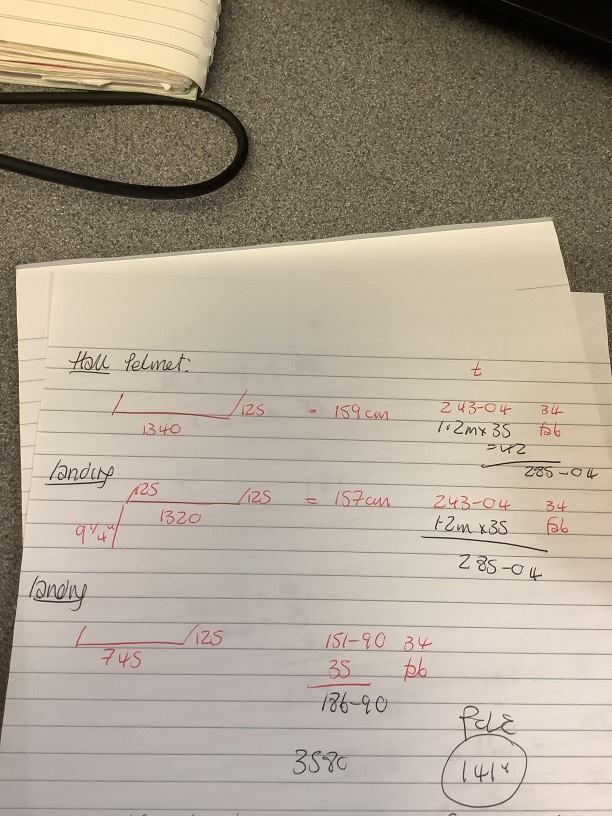 Hall Pelmet:
£
125 = 159cm 243-04 34
1340 1.2m x 35 fab
=42
285-04
Landing
125 125 = 157cm 243-04 34
1320
9 1/4" 1.2m x 35 fab
285-04
Landing
125 151-90 34
745 35 fab
186-90
Pole
3580 141"